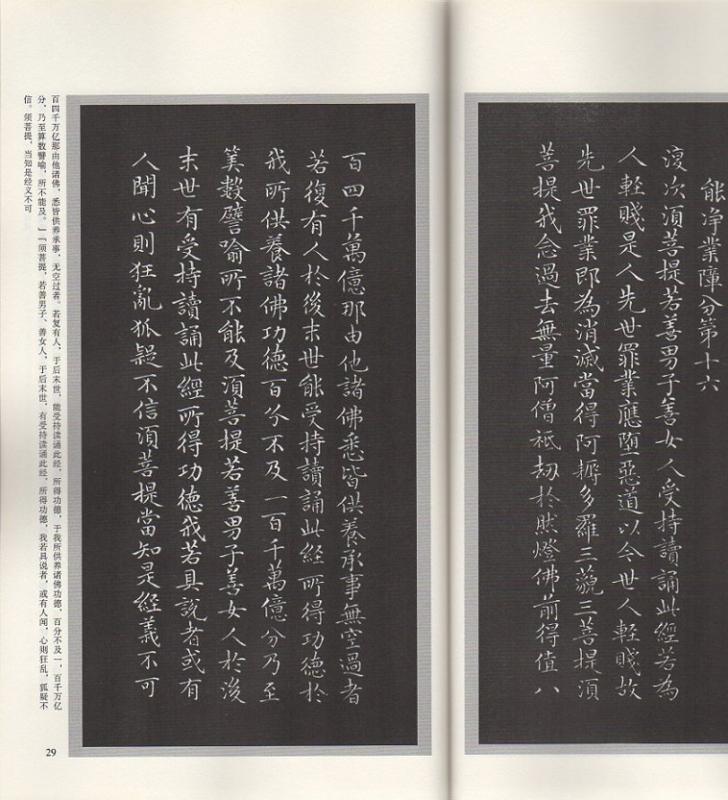 能净業障分第十六
復次須菩提若善男子善女人受持讀誦此經若為
人輕賤是人先世罪業應墮惡道以今世人輕賤故
先世罪業即為消滅當得阿耨多羅三藐三菩提須
菩提我念過去無量阿僧祇劫於然燈佛前得值八
百四千萬億那由他諸佛悉皆供養承事無空過者
若復有人於後末世能受持讀誦此經所得功德於
我所供養諸佛功德百分不及一百千萬億分乃至
筭數譬喻所不能及須菩提若善男子善女人於後
末世有受持讀誦此經所得功德我若具說者或有
人聞心則狂亂狐疑不信須菩提當知是經義不可
百四千万亿那由他诸佛，悉皆供养承事，无空过者。若复有人，于后末世，能受持读诵此经，所得功德，于我所供养诸佛功德，百分不及一，百千万亿
分，乃至算数譬喻，所不能及。」「须菩提，若善男子、善女人，于后末世，有受持读诵此经，所得功德，我若具说者，或有人闻，心则狂乱，狐疑不
信。须菩提，当知是经义不可
29